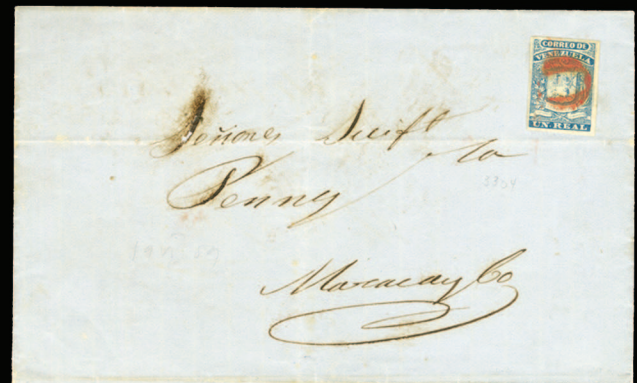 CORREO DE
VENEZUELA
UN REAL
Señores Swift
Penny
Maracaybo
5304